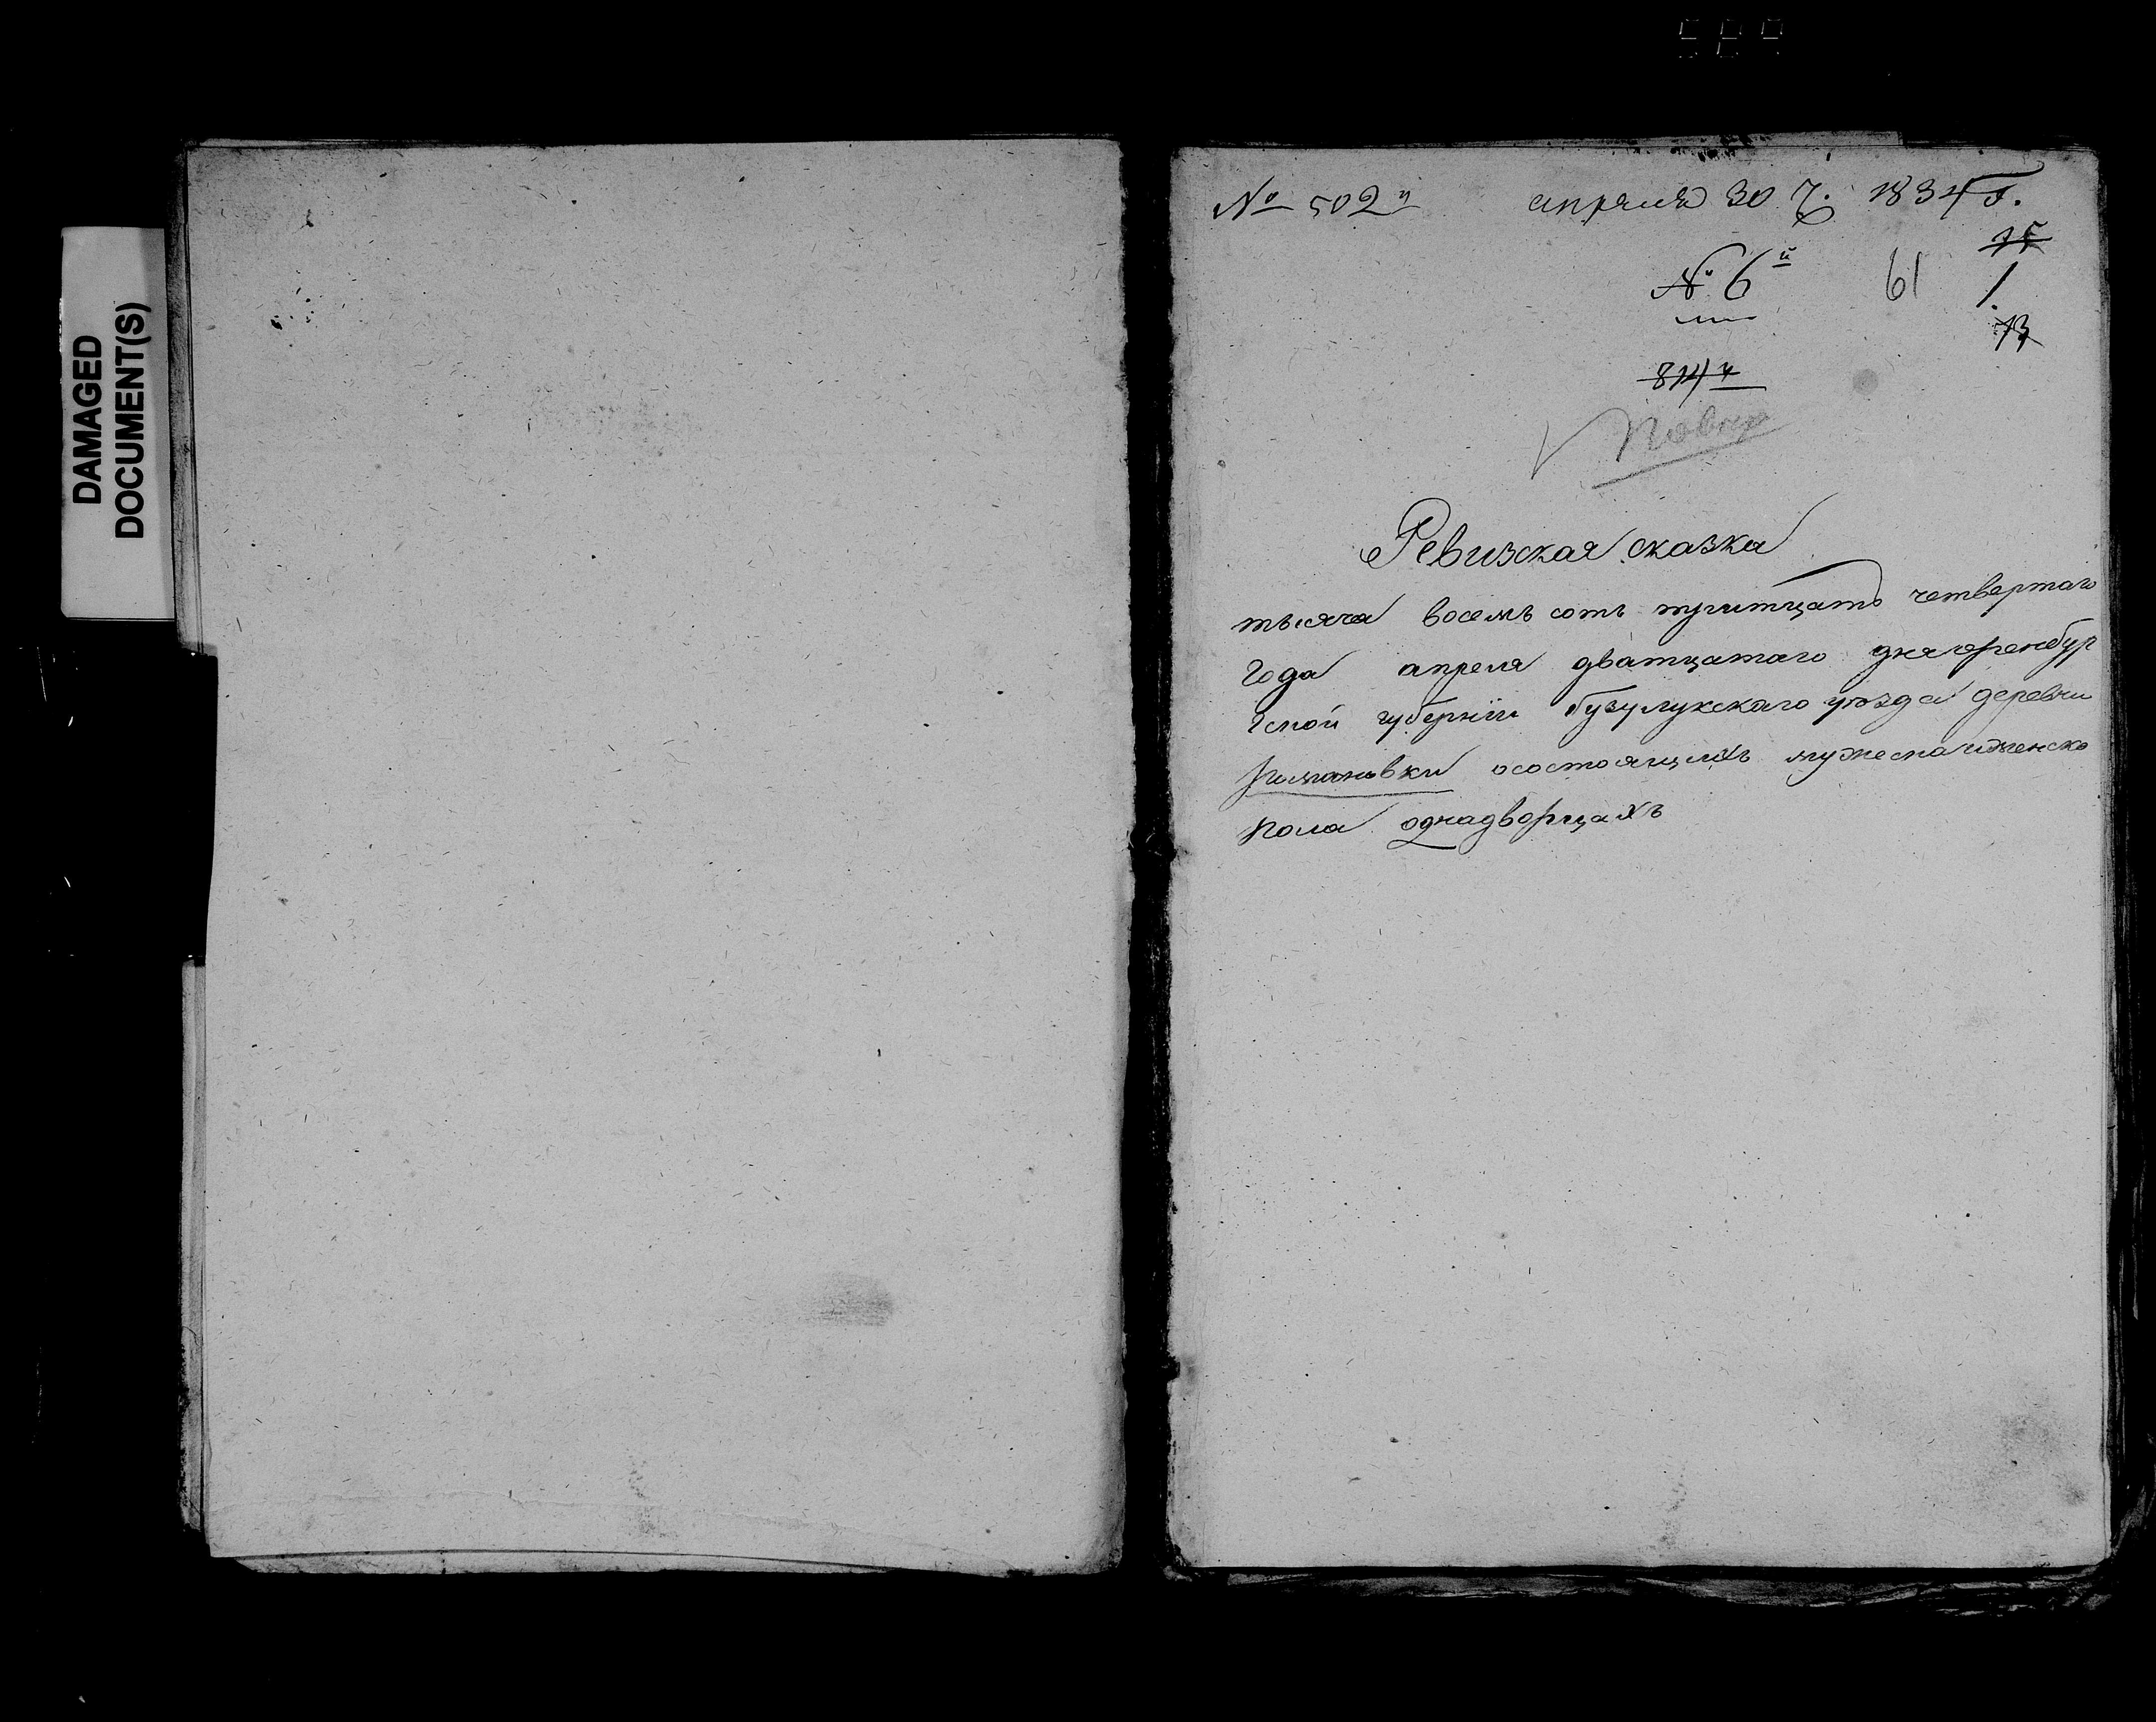 DAMAGED
DOCUMENT(S)
№ 502й апреля 30 ч. 1834 г.
75
№ 6й 61 1
73
814й
Ревизская сказка
тысяча восемь сотъ тритцать четвертаго
года апреля дватцатаго дня оренбур
гской губернiи бузулукскаго уѣзда деревни
осостоящихъ мужеска иженска
пола однадворцахъ